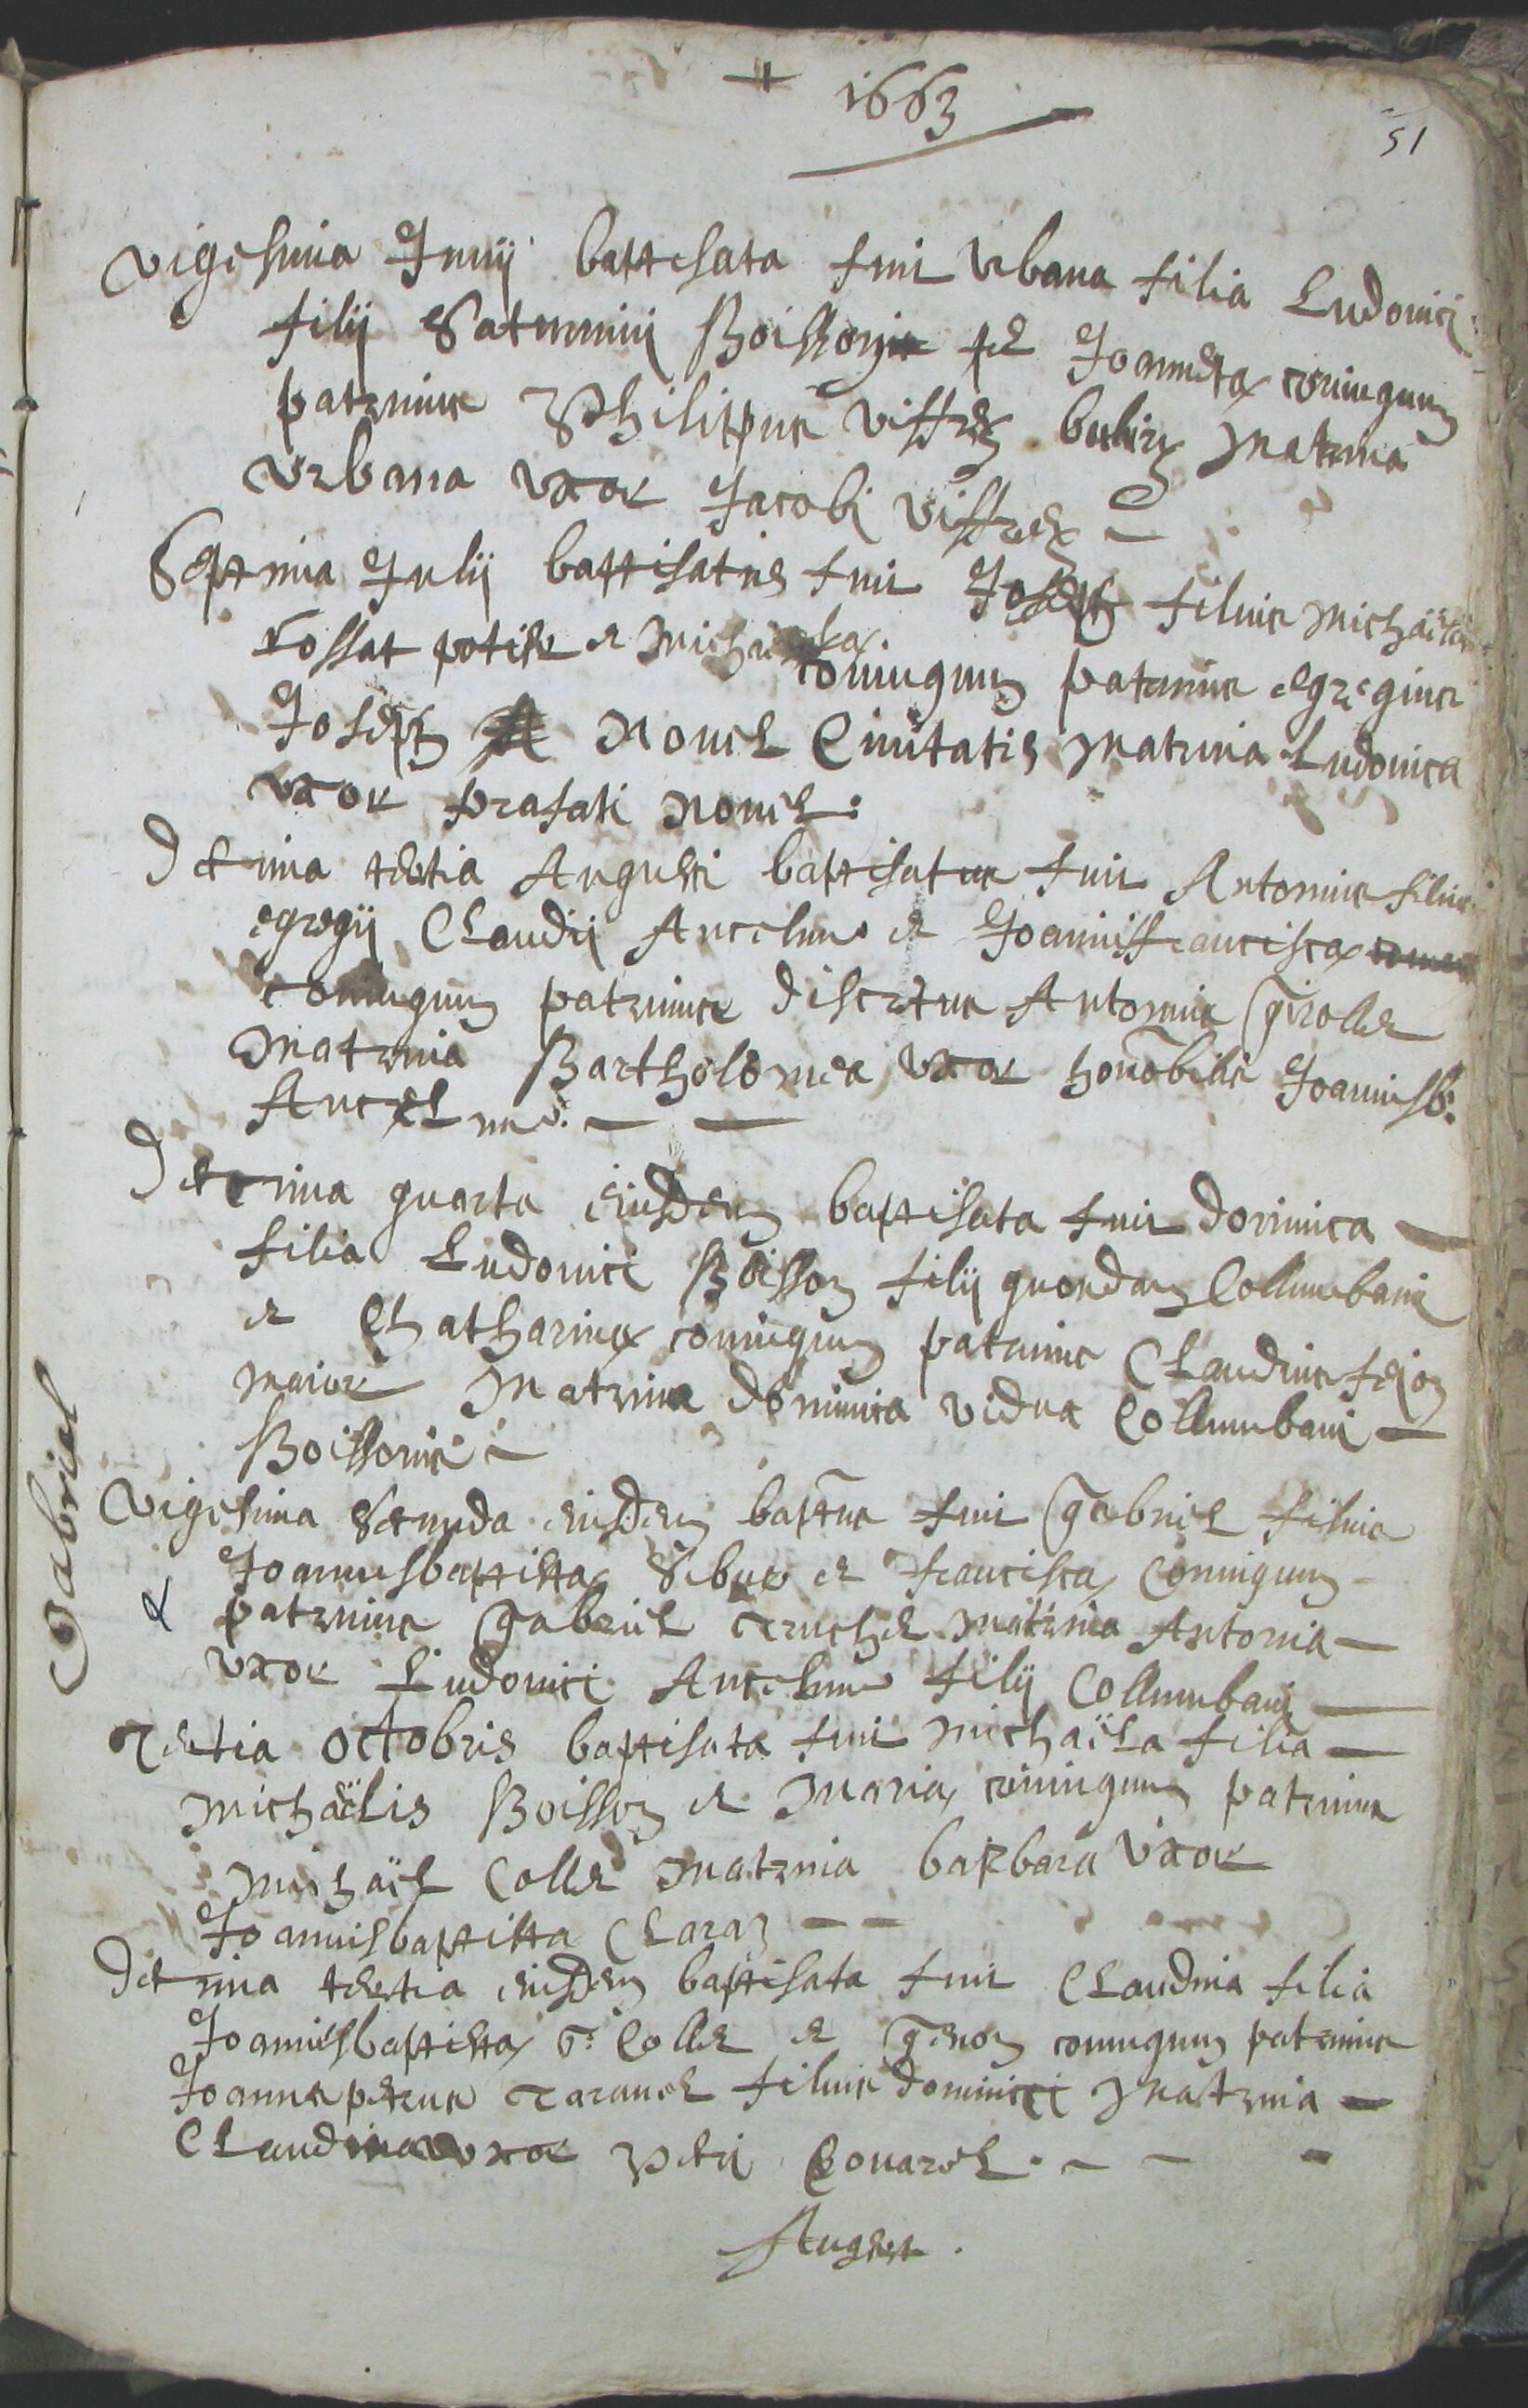 + 1663
51
Vigesima Junij battesata fuit Urbana filia Ludovici
filij Saturnini Boissonis et Joannetæ coniugum
patrinus Philippus Viffrey matrina
Urbana uxor Jacobi Viffrey —
Septima Julij battisatus fuit Joseph filius Michäelis
Fossat et Michaelæ coniugum patrinus egregius
Joseph Novel Civitatis matrina Ludovica
uxor præfati Novel.
Decima tertia Augusti baptisatus fuit Antonius filius
egregij Claudij Ancelme et Joannisfranciscæ
coniugum patrinus discretus Antonius Girollet
matrina Bartholomea uxor honobilis Joannisb.
Ancelme. — —
Decima quarta eiusdem baptisata fuit Dominica —
filia Ludovici Boisson filij quondam Collumbani
et Chatharinæ coniugum patrinus Claudius
maior matrina Dominica vidua Collumbani —
Boissonis —
Gabriel
Vigesima secunda eiusdem baptus fuit Gabriel filius
Joannisbaptistæ Sibue et Franciscæ coniugum -
patrinus Gabriel Truchet matrina Antonia —
uxor Ludovici Ancelme filij Collumbani —
Tertia Octobris baptisata fuit Michäela filia —
Michäelis Boisson et Mariæ coniugum patrinus
Michäel Collet matrina Barbara uxor
Joannisbaptista Claraz — —
Decima tertia eiusdem baptisata fuit Claudina filia
Joannisbaptistæ G. Collet et coniugum patrinus
Joannespetrus Taravel filius Dominici matrina —
Claudina uxor Petri Covarel. — — -